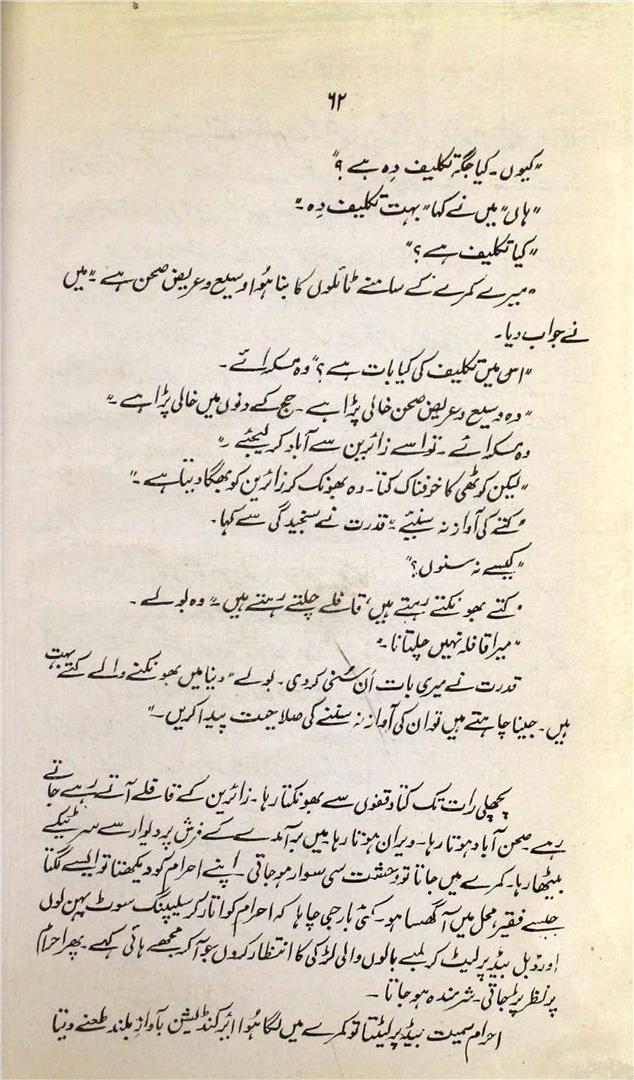 ۶۲
"کیوں۔ کیا جگہ تکلیف دِہ ہے ؟"
"ہاں" میں نے کہا "بہت تکلیف دِہ۔"
"کیا تکلیف ہے؟"
"میرے کمرے کے سامنے ٹائلوں کا بنا ہُوا وسیع و عریض صحن ہے۔" میں
نے جواب دیا۔
"اس میں تکلیف کی کیا بات ہے؟" وہ مسکرائے۔
"وہ وسیع و عریض صحن خالی پڑا ہے۔ حج کے دنوں میں خالی پڑا ہے۔"
وہ مسکرائے۔ تو اسے زائرین سے آباد کر لیجئے۔"
"لیکن کوٹھی کا خوفناک کتا۔ وہ بھونک کر زائرین کو بھگا دیتا ہے۔"
"کتے کی آواز نہ سنیئے۔" قدرت نے سنجیدگی سے کہا۔
"کیسے نہ سنوں؟"
"کتے بھونکتے رہتے ہیں، قافلے چلتے رہتے ہیں۔" وہ بولے۔
"میرا قافلہ نہیں چلتا نا۔"
قدرت نے میری بات اَن سُنی کر دی۔ بولے "دنیا میں بھونکنے والے کتے بہت
ہیں۔ جینا چاہتے ہیں تو ان کی آواز نہ سننے کی صلاحیت پیدا کریں۔"
پچھلی رات تک کتا وقفوں سے بھونکتا رہا۔ زائرین کے قافلے آتے رہے جاتے
رہے۔ صحن آباد ہوتا رہا۔ ویران ہوتا رہا میں برآمدے کے فرش پر دیوار سے سر ٹیکے
بیٹھا رہا۔ کمرے میں جاتا تو وحشت سی سوار ہو جاتی۔ اپنے احرام کو دیکھتا تو ایسے لگتا
جیسے فقیر، محل میں آ گھسا ہو۔ کئی بار جی چاہا کہ احرام کو اتار کر سلیپنگ سوٹ پہن لوں
اور ڈبل بیڈ پر لیٹ کر لمبے بالوں والی لڑکی کا انتظار کروں جو آ کر مجھے ہائی کہے۔ پھر احرام
پر نظر پڑ جاتی۔ شرمندہ ہو جاتا۔
احرام سمیت بیڈ پر لیٹتا تو کمرے میں لگا ہُوا ائر کنڈیشن بآواز بلند طعنے دیتا